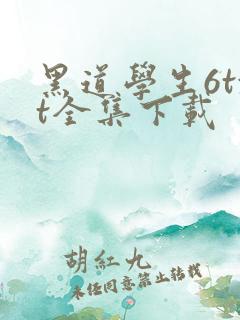 黑道學生6tx
t全集下載
胡紅九
未經同意禁止转載